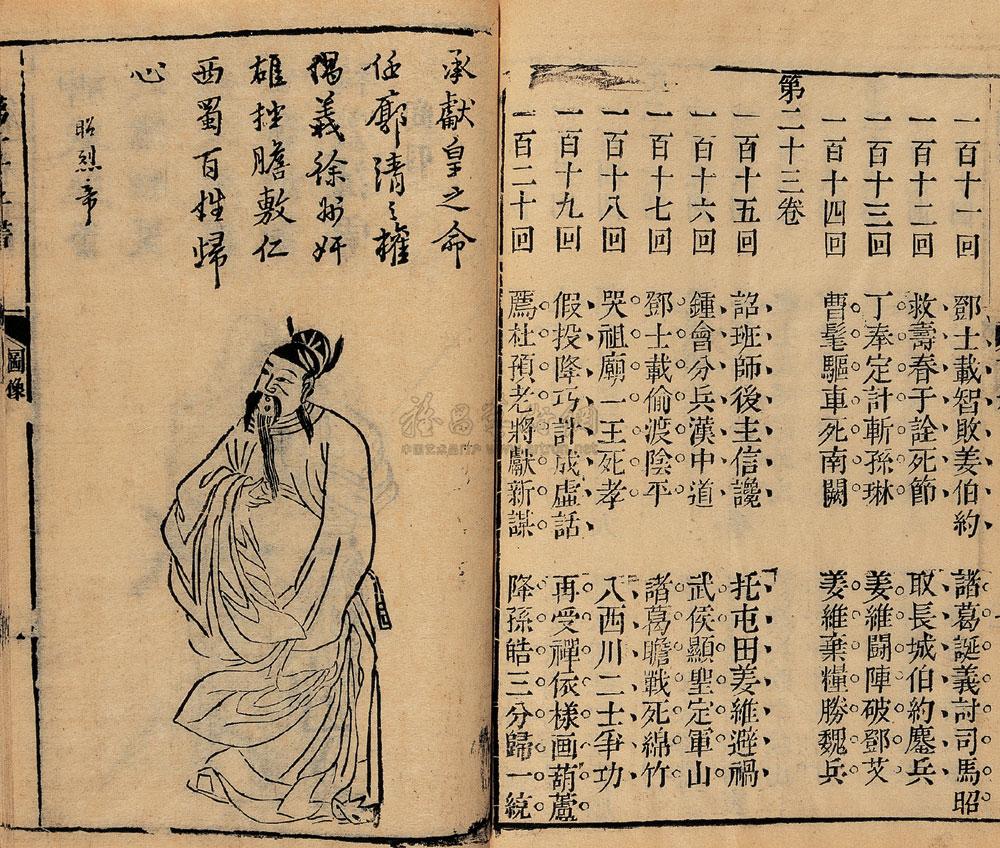 一百十一回 鄧士載智敗姜伯約 諸葛誕義討司馬昭
一百十二回 救壽春于詮死節 取長城伯約鏖兵
一百十三回 丁奉定計斬孫琳 姜維鬪陣破鄧艾
一百十四回 曹髦驅車死南闕 姜維棄糧勝魏兵
第二十三卷
一百十五回 詔班師後主信讒 托屯田姜維避禍
一百十六回 鍾會分兵漢中道 武侯顯聖定軍山
一百十七回 鄧士載偷渡陰平 諸葛瞻戰死綿竹
一百十八回 哭祖廟一王死孝 入西川二士爭功
一百十九回 假投降巧計成虛話 再受禪依樣画葫蘆
一百二十回 薦杜預老將獻新謀 降孫皓三分歸一統
承獻皇之命
任廓清々權
義徐州奸
雄挫膽敷仁
西蜀百姓歸
心
昭烈帝
圖像